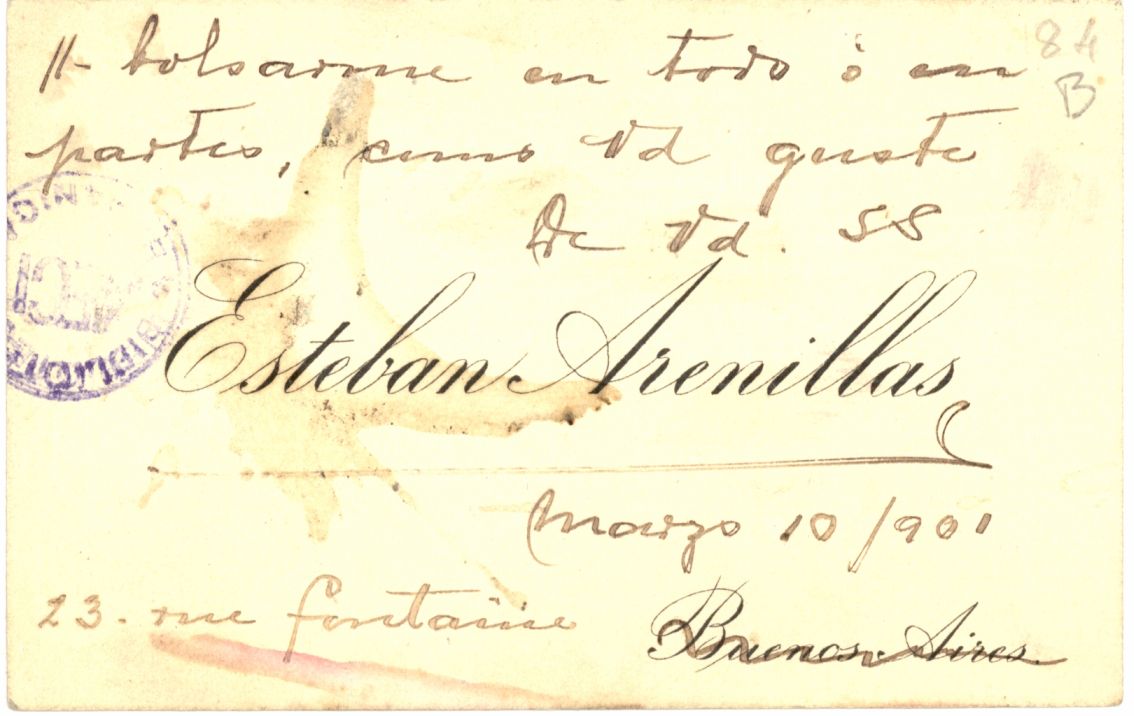 84
B
bolsarme en todo ó en
partes, como Vd guste
De Vd. SS
Esteban Arenillas
Marzo 10/901
23. rue fontaine
Buenos Aires.